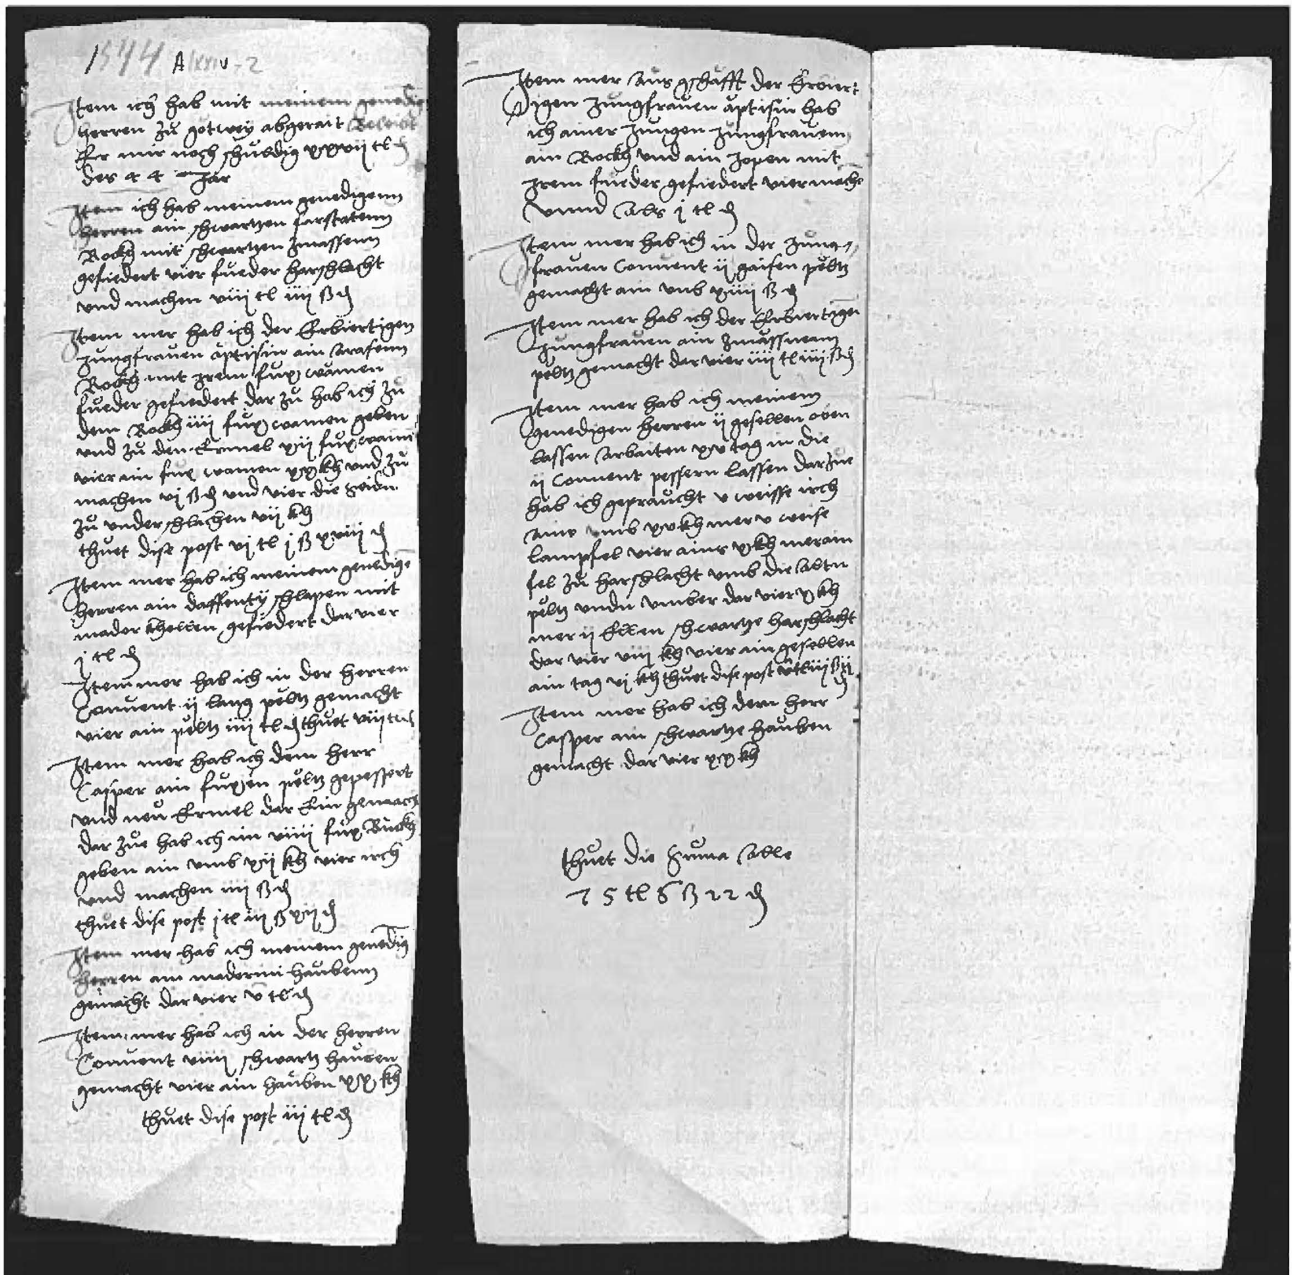 1544 A/XXIV-2
Jtem ich hab mit meinem genedi
herren zu gotwey abgerait Beleibt
Er mir noch schuldig xxvij tl ₰
des 44 Jar
Jtem ich hab meinem genedigenn
herren ain schwartzen farstatenn
Rockh mit schwartzen zmassenn
gefiedert vier fueder harschlacht
vnd machen viij tl iiij ß ₰
Jtem mer hab ich der Erbiertigen
Jungfrauen äptisin ain arasenn
Rockh mit irem fux wamen
fueder gefiedert dar zu hab ich zu
dem Rockh iiij fux wamen geben
vnd zu den Ermel xij fux wam
vier ain fux wamen xx kh vnd zu
machen vj ß ₰ vnd vier die seidn
zu vnderschlachen vij kh
thuet dise post vj tl j ß xviij ₰
Jtem mer hab ich meinem genedige
herren ain daffenty schlapen mit
mader khellen gefiedert dar vier
j tl ₰
Jtem mer hab ich in der herren
Convent ij lang peltz gemacht
vier ain peltz iiij tl ₰ thuet viij tl ₰
Jtem mer hab ich dem herr
Casper ain fuxen peltz gepessert
vnd neu Ermel dar Ein gemach
dar zue hab ich im viiij fux Ruckh
geben ain vmb xij kh vier irch
vnd machen iiij ß ₰
thuet dise post j tl iij ß xij ₰
Jtem mer hab ich meinem genedig
herren ain maderini haubenn
gemacht dar vier v tl ₰
Jtem mer hab ich in der herren
Convent viiij schwartz hauben
gemacht vier ain hauben xx kh
thuet dise post iij tl ₰
Jtem mer aus gschäfft der Erbiert
igen Jungfrauen äptisin hab
ich ainer Jungen Jungfrauen
ain Rockh vnd ain Jopen mit
irem fueder gefiedert vier mache
vnnd als j tl ₰
Jtem mer hab ich in der Jung
frauen Convent ij gaisen peltz
gemacht ain vmb xiiij ß ₰
Jtem mer hab ich der Erbiertigen
Jungfrauen ain zmässnenn
peltz gemacht dar vier iiij tl iiij ß ₰
Jtem mer hab ich meinem
genedigen herren ij gesellen oben
lassen arbaiten xv tag in die
ij Convent pessern lassen dar zue
hab ich gepraucht v weisse irch
ains vmb xv kh mer v weise
lampfel vier ains x kh mer ain
fel zu harschlacht vmb die altn
peltz vndn vmber dar vier x kh
mer ij Ellen schwartze harschlacht
dar vier viij kh vier ain gesellen
ain tag vj kh thuet dise post v tl iiij ß xij
₰
Jtem mer hab ich dem herr
Casper ain schwartze hauben
gemacht dar vier xx kh
thuet die Suma alle
75 tl 6 ß 22 ₰